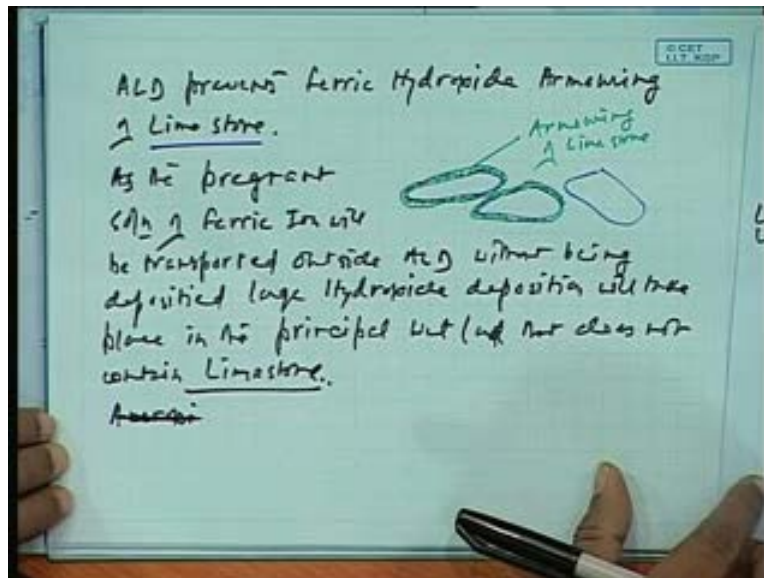 © CET
I.I.T. KGP
ALD prevents ferric Hydroxide Armouring
of Lime stone.
Armouring
of Lime stone
As the pregnant
soln of ferric Ion will
be transported outside ALD without being
deposited large Hydroxide deposition will take
place in the principal wet land that does not
contain Limestone.